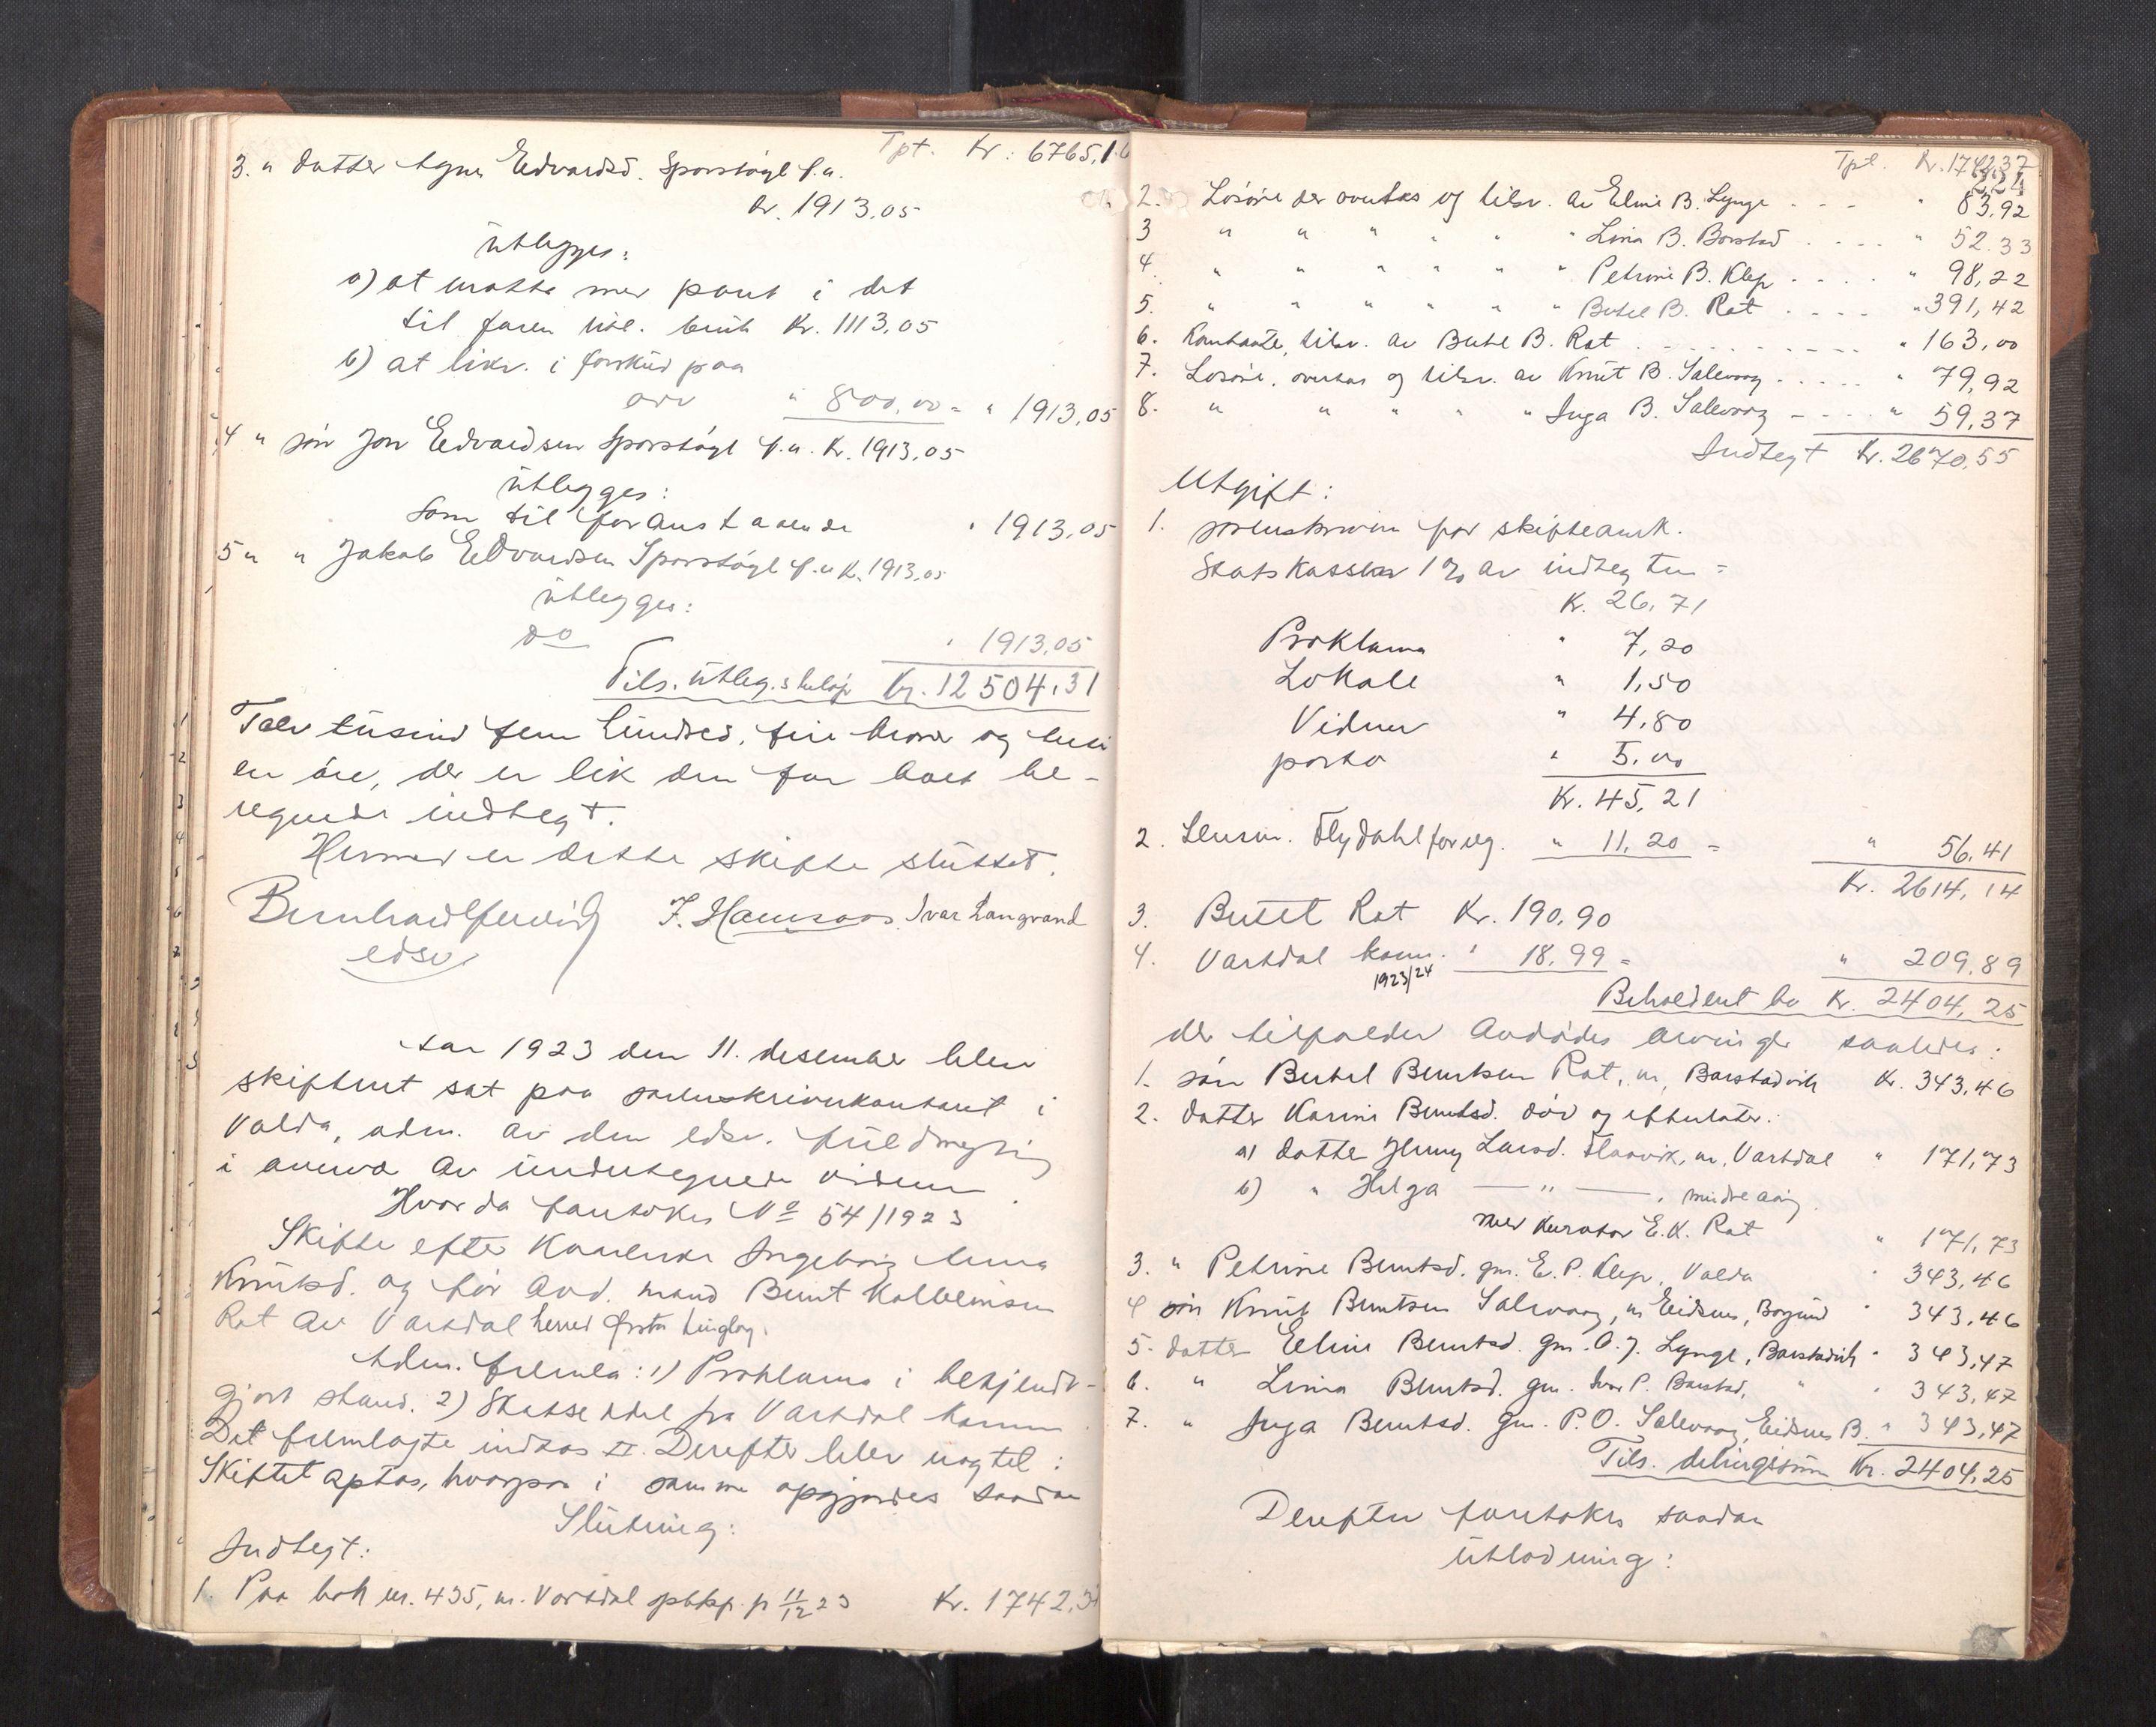 Tpt. Kr: 6765,16
3. " datter Agnes Edvardsd. Sporstøyl f.u.
Kr. 1913.05
ütlegges:
a) at motta mer pant i det
til faren utl. bruk Kr. 1113,05
b) at likv. i forskud paa
arv " 800,00 = " 1913,05
4 " søn Jon Edvardsen Sporstøyl f.u. Kr. 1913,05
ütlegges:
som til foranstaaende " 1913,05
5 " " Jakob Edvardsen Sporstøyl f.u. Kr. 1913,05
ütlegges:
do " 1913,05
Tils. ütleg.s beløp Kr. 12504,31
Tolv tusind fem hündred, fire kroner og treti
en øre, der er lik den for boet be-
regnede indtegt.
Hermed er dette skifte slüttet.
edsv. Ivar Langvand
Aar 1923 den 11. desember blev
skifteret sat paa sorenskriverkontoret i
Volda, adm. av den edsv. füldmegtig
i overvær av ündertegnede vidner.
Hvorda foretokes No 54/1923
Skifte efter Kaarenke Ingeborg Anna
Knütsd. og før avd. mand Bernt Kolbeinsen
Rot av Vartdal herred Ørsta tinglag.
Adm. fremla: 1) Proklama i bekjendt-
gjort stand. 2) Skatseddel fra Vartdal komm.
Det fremlagte indtas II. Derefter blev nogtel:
Skiftet optas, hvorpaa i samme opgjordes saadan
Slütning:
Indtegt:
1. Paa bok nr. 435, m. Vartdal spbkp. pr 11/12 23 Kr. 1742,37
Tpt. Kr. 1742,37
224
2. Løsøre der overtas og tilsv. av Eline B. Lynge - - - " 83,92
3 " " " " " " Lina B. Barstad . . . . " 52.33
4. " " " " " " Petrine B. Klep . . . . " 98,22
5. " " " " " " Bertel B. Rot . . . . " 391,42
6. Kontante, tilsv. av Bertel B. Rot . . . . . . . " 163,00
7. Løsøre, overtas og tilsv. av Knüt B. Salevaag . . . . . " 79,92
8. " " " " " Inga B. Salevaag - . . . " 59,37
Indtegt Kr. 2670,55
Utgift:
1. Sorenskriveren for skifteamk.
Statskassen 1% av indtegten =
Kr. 26,71
Proklama " 7,20
Lokale " 1,50
Vidner " 4,80
porto " 5,00
Kr. 45,21
2. Lensm. Flydahl for reg. " 11,20 = " 56,41
Kr. 2614,14
3. Bertel Rot Kr. 190,90
4. Vartdal komm. " 18,99 = " 209,89
1923/24
Beholdent bo Kr. 2404,25
der tilfalder avdødes arvinger saaledes:
1. søn Bertel Berntsen Rot, m, Barstadvik Kr. 343,46
2. datter Karine Berntsd. död og efterlater:
a) datter Jenny Larsd. Flaavik, m. Vartdal " 171,73
b) " Helga — " — , mindreaarig
mer kurator E. K. Rot " 171,73
3. " Petrine Berntsd. gm. E. P. Klep, Volda " 343,46
4 søn Knüt Berntsen Salevaag, m Eidsnes, Borgund " 343,46
5. datter Eline Berntsd. gm. O. J. Lynge, Barstadvik " 343,47
6. " Lina Berntsd. gm. Ivar P. Barstad, " " 343,47
7. " Inga Berntsd. gm. P. O. Salevaag, Eidsnes B. " 343,47
Tils. delingssum Kr. 2404,25
Derefter foretokes saadan
ütlodning: